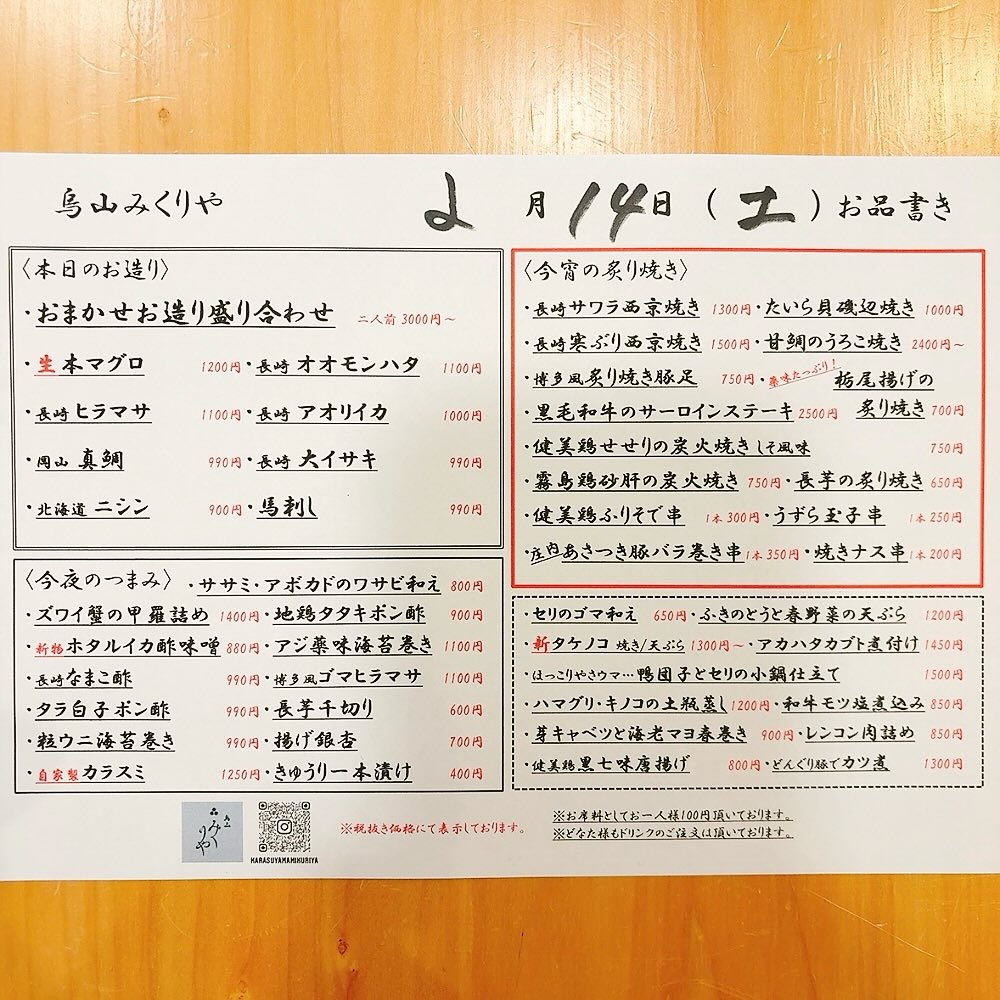 烏山みくりや 2月14日(土)お品書き
〈本日のお造り〉
・おまかせお造り盛り合わせ 二人前 3000円～
・生本マグロ 1200円・長崎オオモンハタ 1100円
・長崎ヒラマサ 1100円・長崎アオリイカ 1000円
・岡山真鯛 990円・長崎大イサキ 990円
・北海道ニシン 900円・馬刺し 990円
〈今夜のつまみ〉・ササミ・アボカドのワサビ和え 800円
・ズワイ蟹の甲羅詰め 1400円・地鶏タタキポン酢 900円
・新物ホタルイカ酢味噌 880円・アジ薬味海苔巻き 1100円
・長崎なまこ酢 990円・博多風ゴマヒラマサ 1100円
・タラ白子ポン酢 990円・長芋千切り 600円
・粒ウニ海苔巻き 990円・揚げ銀杏 700円
・自家製カラスミ 1250円・きゅうり一本漬け 400円
〈今宵の炙り焼き〉
・長崎サワラ西京焼き 1300円・たいら貝磯辺焼き 1000円
・長崎寒ぶり西京焼き 1500円・甘鯛のうろこ焼き 2400円～
・博多風炙り焼き豚足 750円・薬味たっぷり!栃尾揚げの
・黒毛和牛のサーロインステーキ 2500円 炙り焼き 700円
・健美鶏せせりの炭火焼きしそ風味 750円
・霧島鶏砂肝の炭火焼き 750円・長芋の炙り焼き 650円
・健美鶏ふりそで串 1本300円・うずら玉子串 1本250円
・庄内あさつき豚バラ巻き串 1本350円・焼きナス串 1本200円
・セリのゴマ和え 650円・ふきのとうと春野菜の天ぷら 1200円
・新タケノコ 焼き/天ぷら 1300円～・アカハタカブト煮付け 1450円
・ほっこりやさウマ…鴨団子とセリの小鍋仕立て 1500円
・ハマグリ・キノコの土瓶蒸し 1200円・和牛モツ塩煮込み 850円
・芽キャベツと海老マヨ春巻き 900円・レンコン肉詰め 850円
・健美鶏黒七味唐揚げ 800円・どんぐり豚でカツ煮 1300円
みくりや
KARASUYAMAMIKURIYA
※税抜き価格にて表示しております。
※お席料としてお一人様100円頂いております。
※どなた様もドリンクのご注文は頂いております。